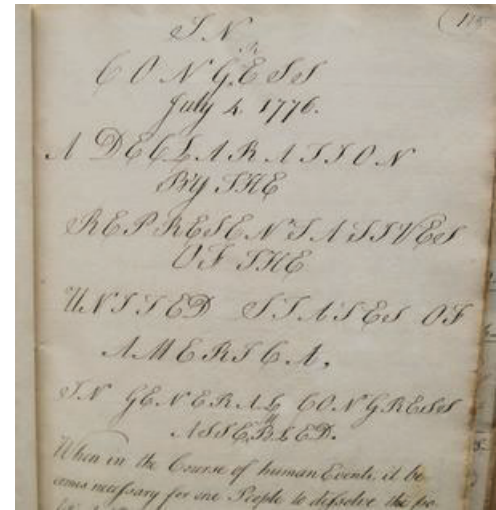 IN
CONGRESS
July 4. 1776.
A DECLARATION
BY THE
REPRESENTATIVES
OF THE
UNITED STATES OF
AMERICA,
IN GENERAL CONGRESS
ASSEMBLED.
When in the Course of human Events, it be
comes necessary for one People to dissolve the po